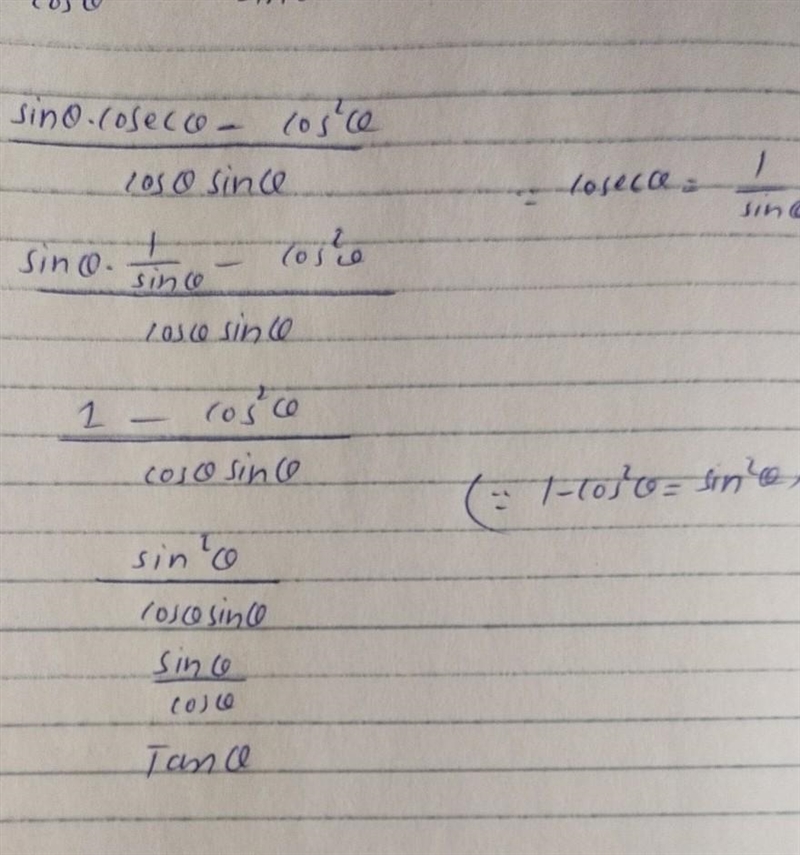 cosθ sinθ
sinθ.cosecθ - cos²θ
cosθ sinθ
∵ cosecθ = 1
sinθ
sinθ. 1 - cos²θ
sinθ
cosθ sinθ
1 - cos²θ
cosθ sinθ
(∵ 1-cos²θ = sin²θ
sin²θ
cosθ sinθ
sinθ
cosθ
Tanθ